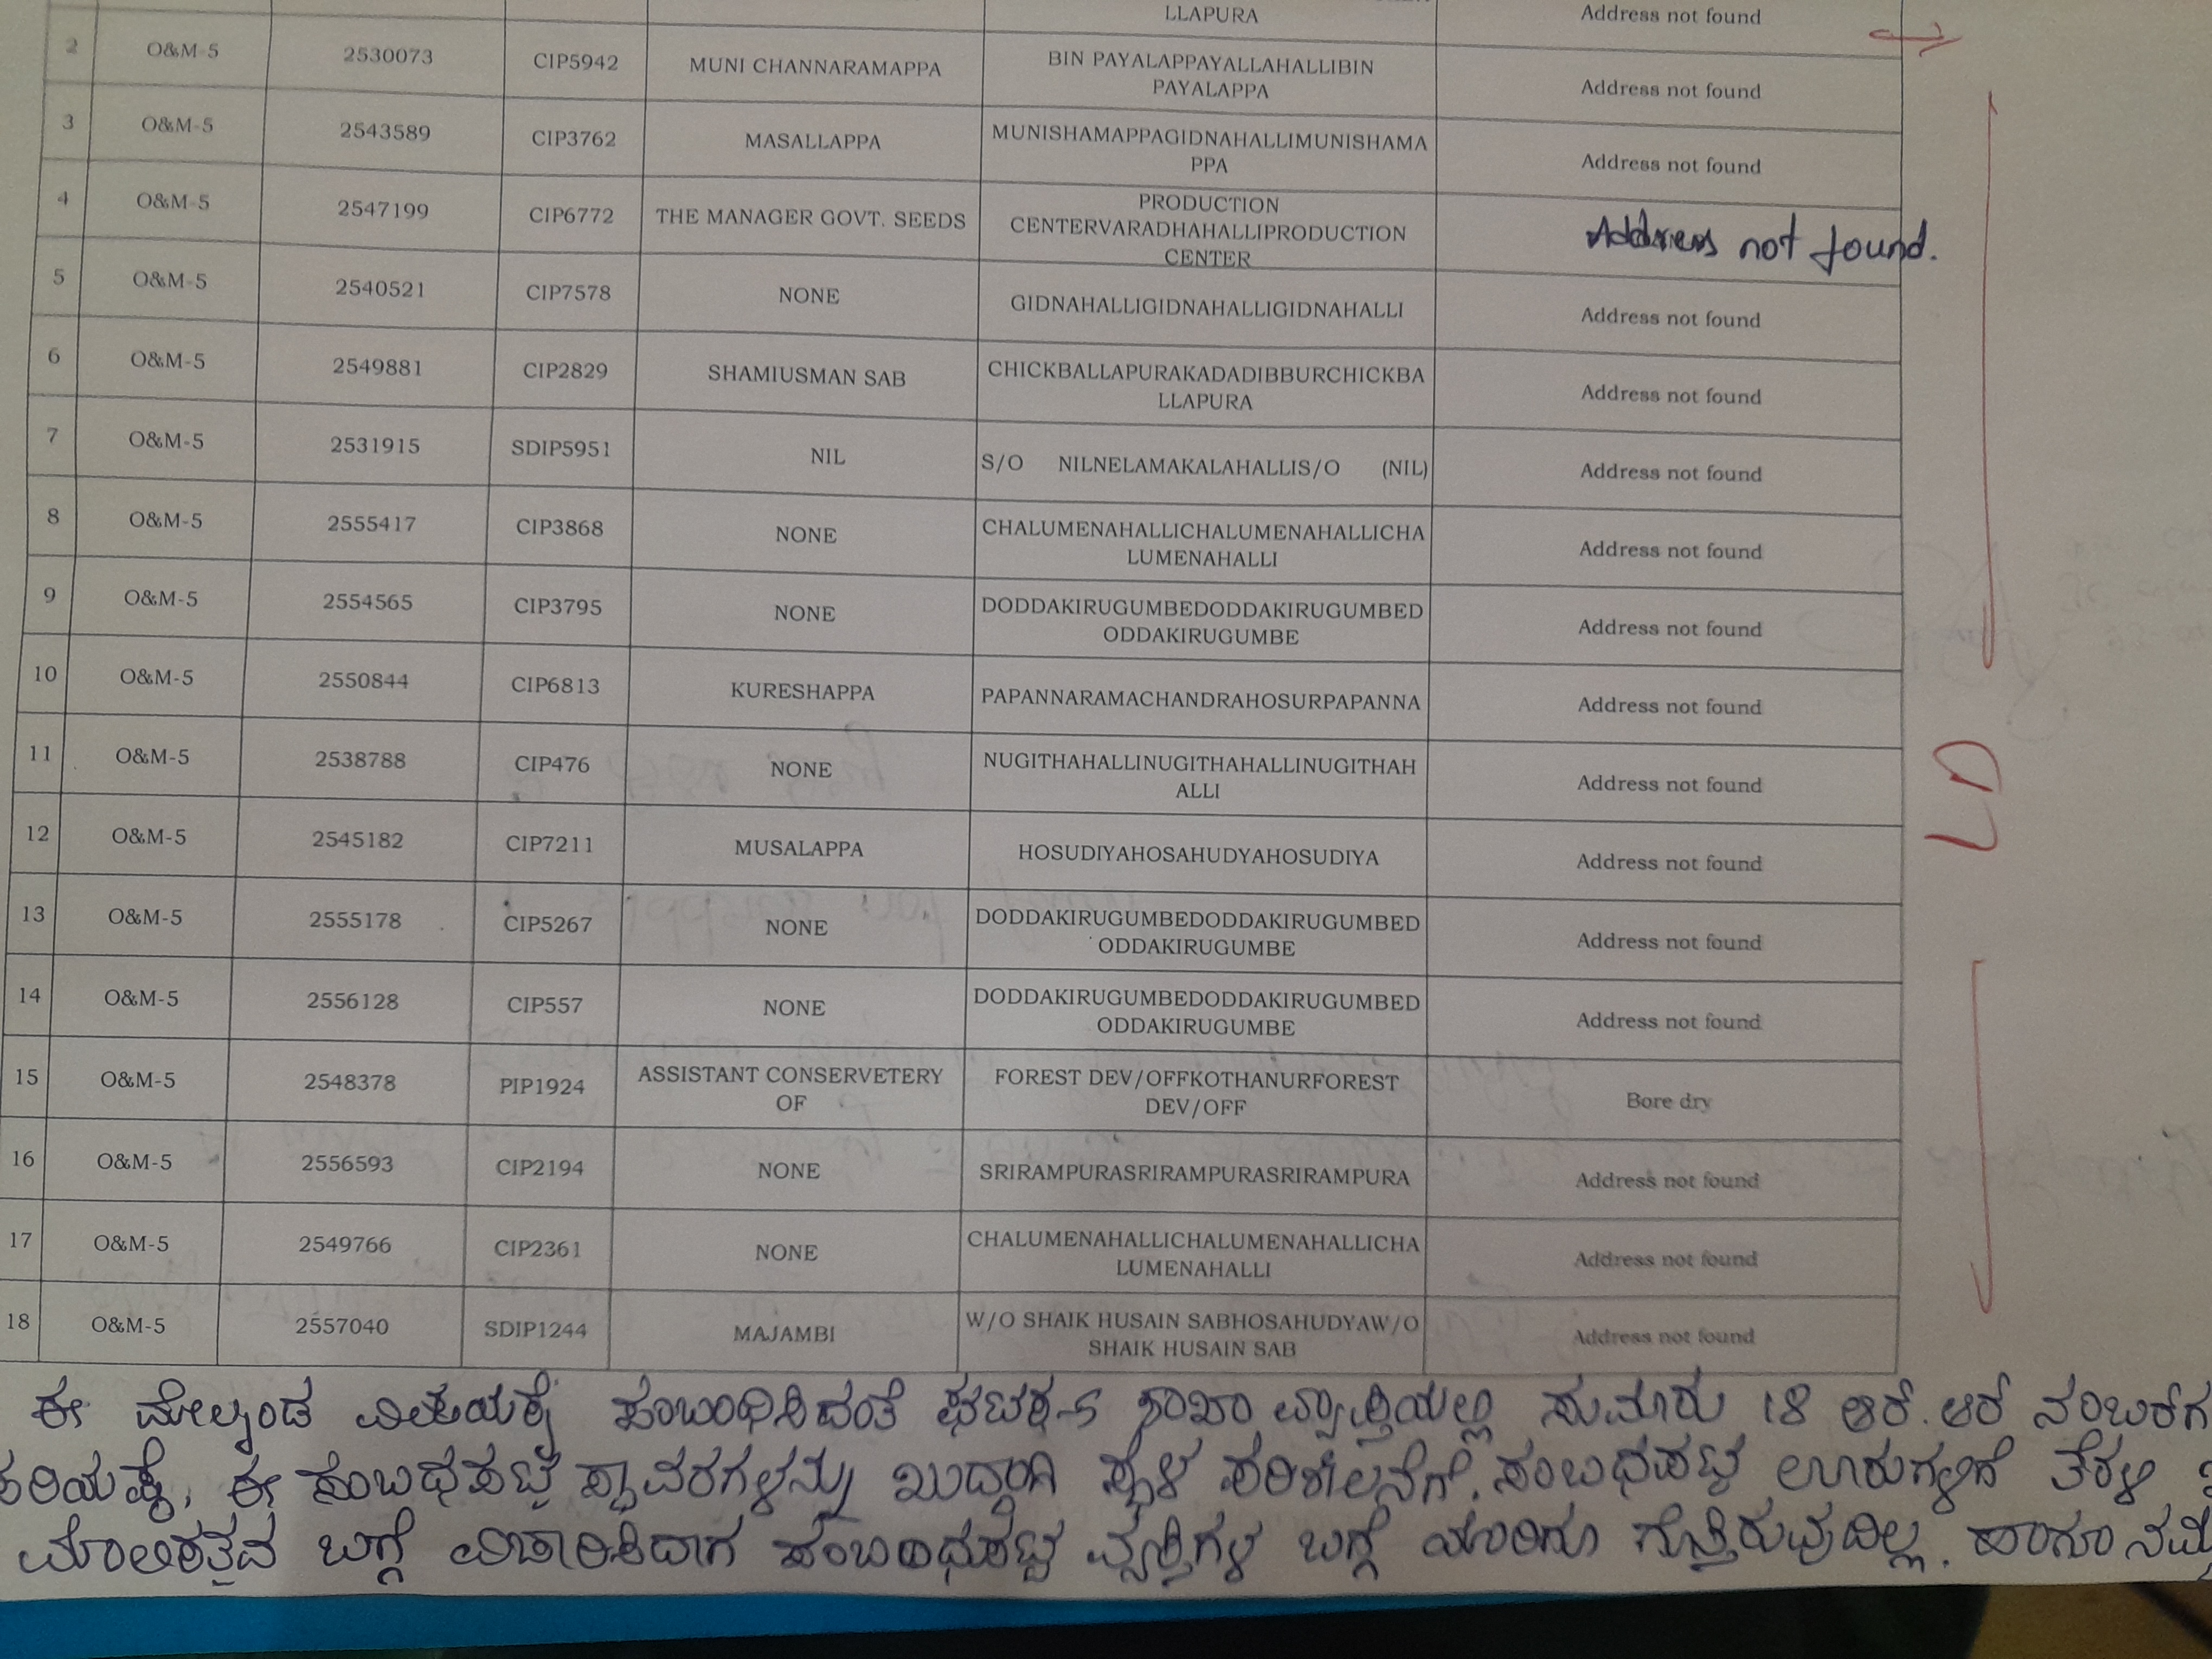 LLAPURA Address not found
2 O&M-5 2530073 CIP5942 MUNI CHANNARAMAPPA BIN PAYALAPPAYALLAHALLIBIN Address not found
PAYALAPPA
3 O&M-5 2543589 CIP3762 MASALLAPPA MUNISHAMAPPAGIDNAHALLIMUNISHAMA Address not found
PPA
4 O&M-5 2547199 CIP6772 THE MANAGER GOVT. SEEDS PRODUCTION Address not found.
CENTERVARADHAHALLIPRODUCTION
CENTER
5 O&M-5 2540521 CIP7578 NONE GIDNAHALLIGIDNAHALLIGIDNAHALLI Address not found
6 O&M-5 2549881 CIP2829 SHAMIUSMAN SAB CHICKBALLAPURAKADADIBBURCHICKBA Address not found
LLAPURA
7 O&M-5 2531915 SDIP5951 NIL S/O NILNELAMAKALAHALLIS/O (NIL) Address not found
8 O&M-5 2555417 CIP3868 NONE CHALUMENAHALLICHALUMENAHALLICHA Address not found
LUMENAHALLI
9 O&M-5 2554565 CIP3795 NONE DODDAKIRUGUMBEDODDAKIRUGUMBED Address not found
ODDAKIRUGUMBE
10 O&M-5 2550844 CIP6813 KURESHAPPA PAPANNARAMACHANDRAHOSURPAPANNA Address not found
11 O&M-5 2538788 CIP476 NONE NUGITHAHALLINUGITHAHALLINUGITHAH Address not found
ALLI
12 O&M-5 2545182 CIP7211 MUSALAPPA HOSUDIYAHOSAHUDYAHOSUDIYA Address not found
13 O&M-5 2555178 CIP5267 NONE DODDAKIRUGUMBEDODDAKIRUGUMBED Address not found
ODDAKIRUGUMBE
14 O&M-5 2556128 CIP557 NONE DODDAKIRUGUMBEDODDAKIRUGUMBED Address not found
ODDAKIRUGUMBE
15 O&M-5 2548378 PIP1924 ASSISTANT CONSERVETERY FOREST DEV/OFFKOTHANURFOREST Bore dry
OF DEV/OFF
16 O&M-5 2556593 CIP2194 NONE SRIRAMPURASRIRAMPURASRIRAMPURA Address not found
17 O&M-5 2549766 CIP2361 NONE CHALUMENAHALLICHALUMENAHALLICHA Address not found
LUMENAHALLI
18 O&M-5 2557040 SDIP1244 MAJAMBI W/O SHAIK HUSAIN SABHOSAHUDYAW/O Address not found
SHAIK HUSAIN SAB
LD
ಈ ಮೇಲ್ಕಂಡ ವಿಷಯಕ್ಕೆ ಸಂಬಂಧಿಸಿದಂತೆ ಘಟಕ-5 ಶಾಖಾ ವ್ಯಾಪ್ತಿಯಲ್ಲಿ ಸುಮಾರು 18 ಆರ್.ಆರ್ ನಂಬರ್‌ಗ
ಈ ಸಂಬಧಪಟ್ಟ ಸ್ಥಾವರಗಳನ್ನು ಖುದ್ದಾಗಿ ಸ್ಥಳ ಪರಿಶೀಲನೆಗೆ. ಸಂಬಧಪಟ್ಟ ಊರುಗಳಿಗೆ ತೆರಳಿ
ಮಾಲಿಕತ್ವದ ಬಗ್ಗೆ ವಿಚಾರಿಸಿದಾಗ ಸಂಬಂಧಪಟ್ಟ ವ್ಯಕ್ತಿಗಳ ಬಗ್ಗೆ ಯಾರಿಗೂ ಗೊತ್ತಿರುವುದಿಲ್ಲ. ಹಾಗೂ